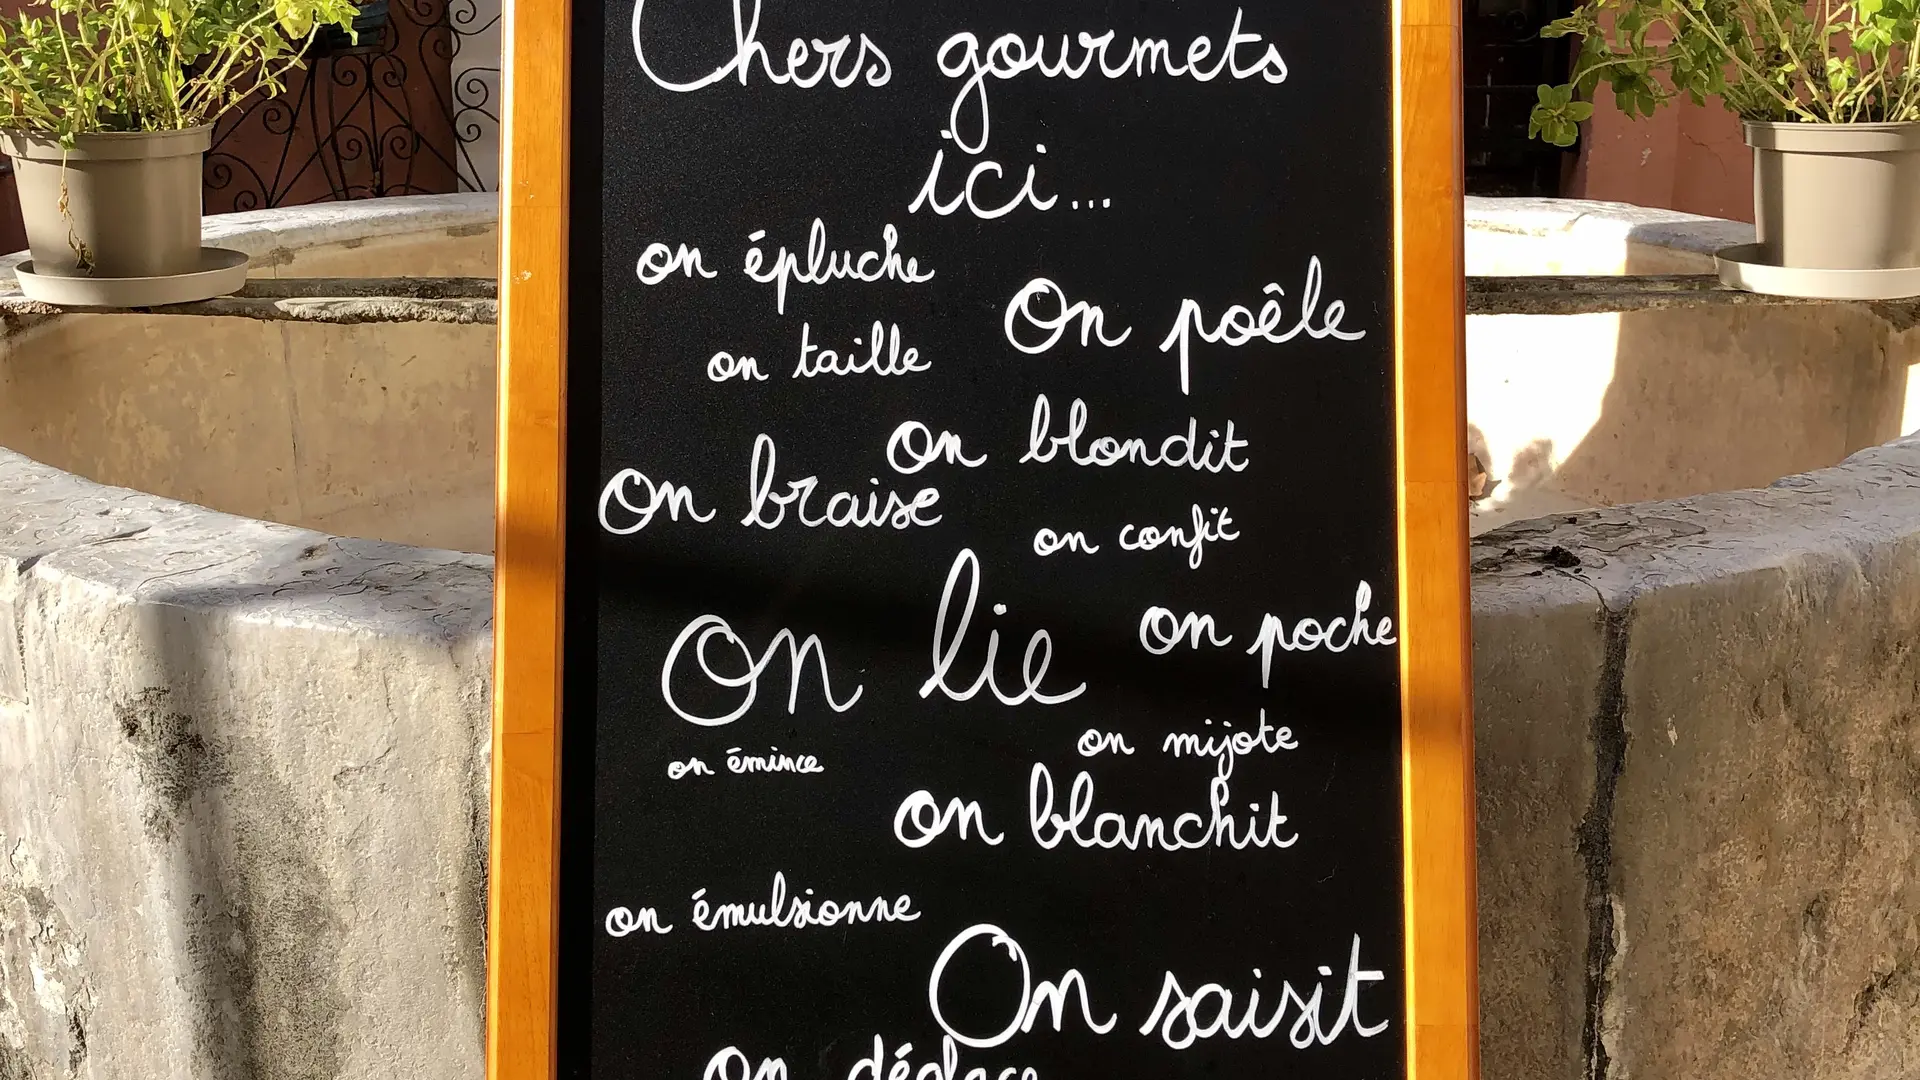 Chers gourmets
ici...
on épluche
On poêle
on taille
On blondit
On braise
on confit
On lie
on poche
on émince
on mijote
on blanchit
on émulsionne
On saisit
On déglace